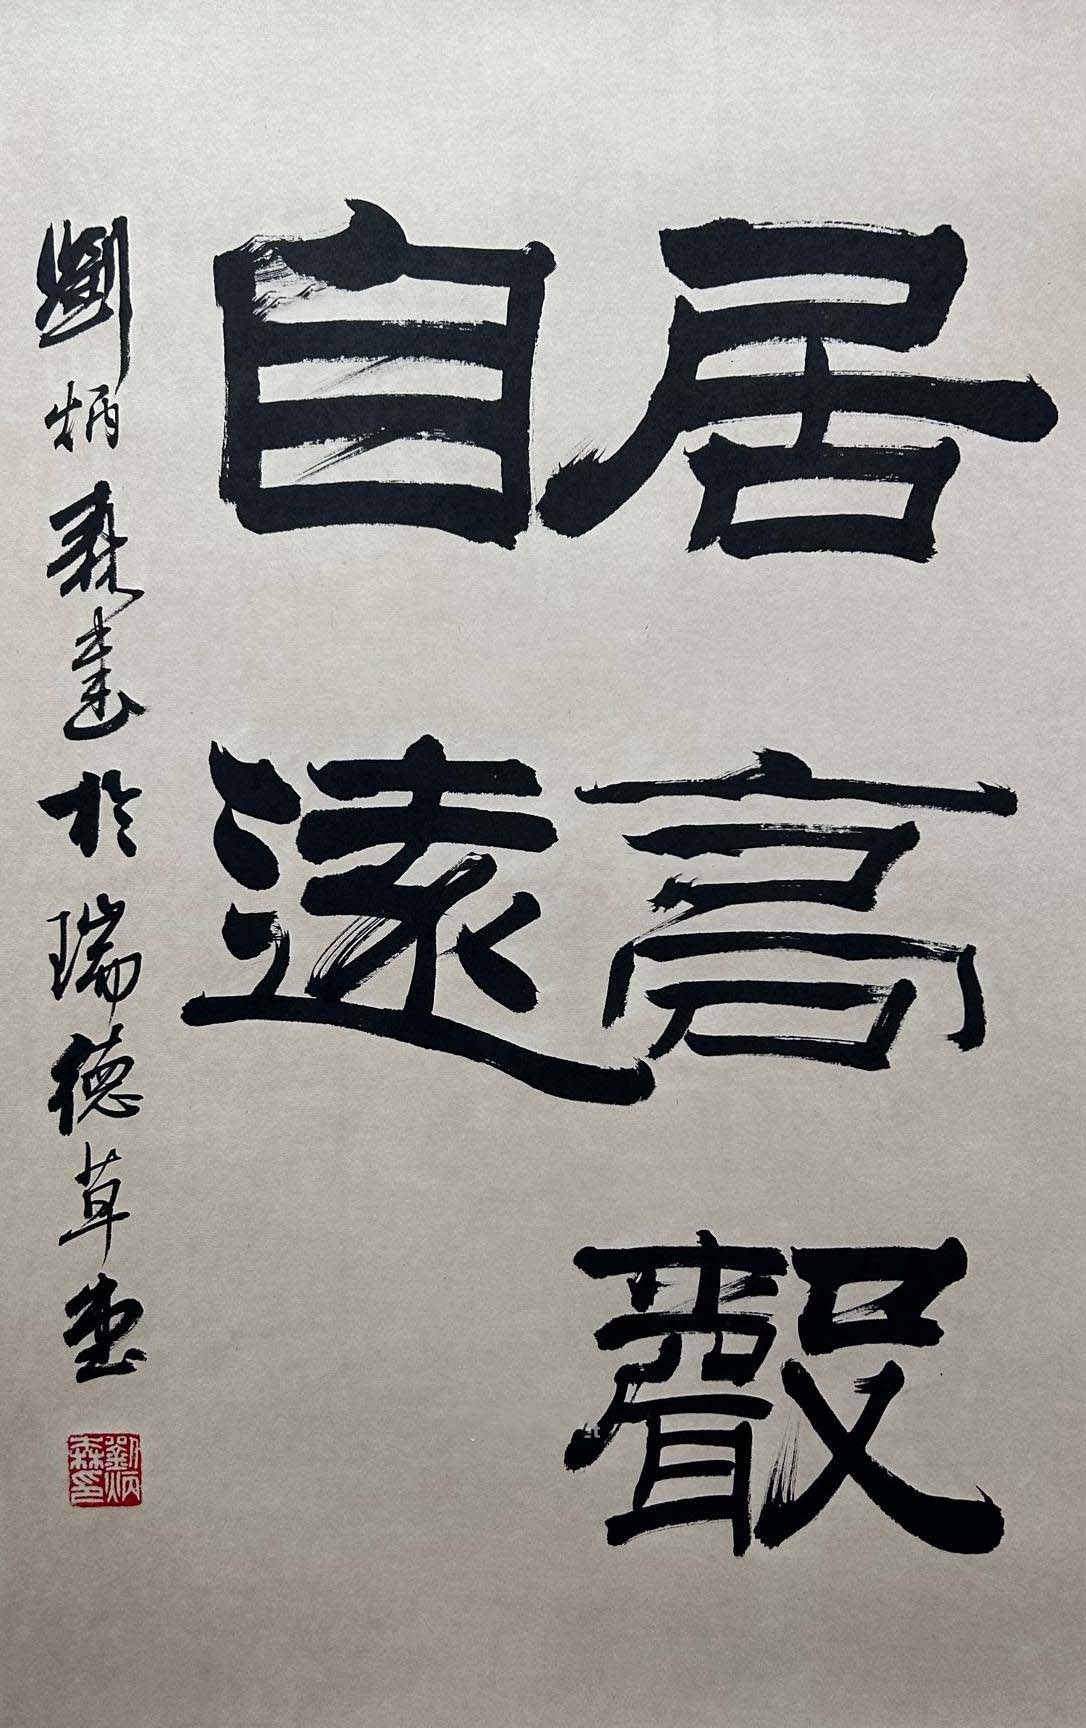 居高聲
自遠
劉炳森書於瑞德草堂
劉炳森印